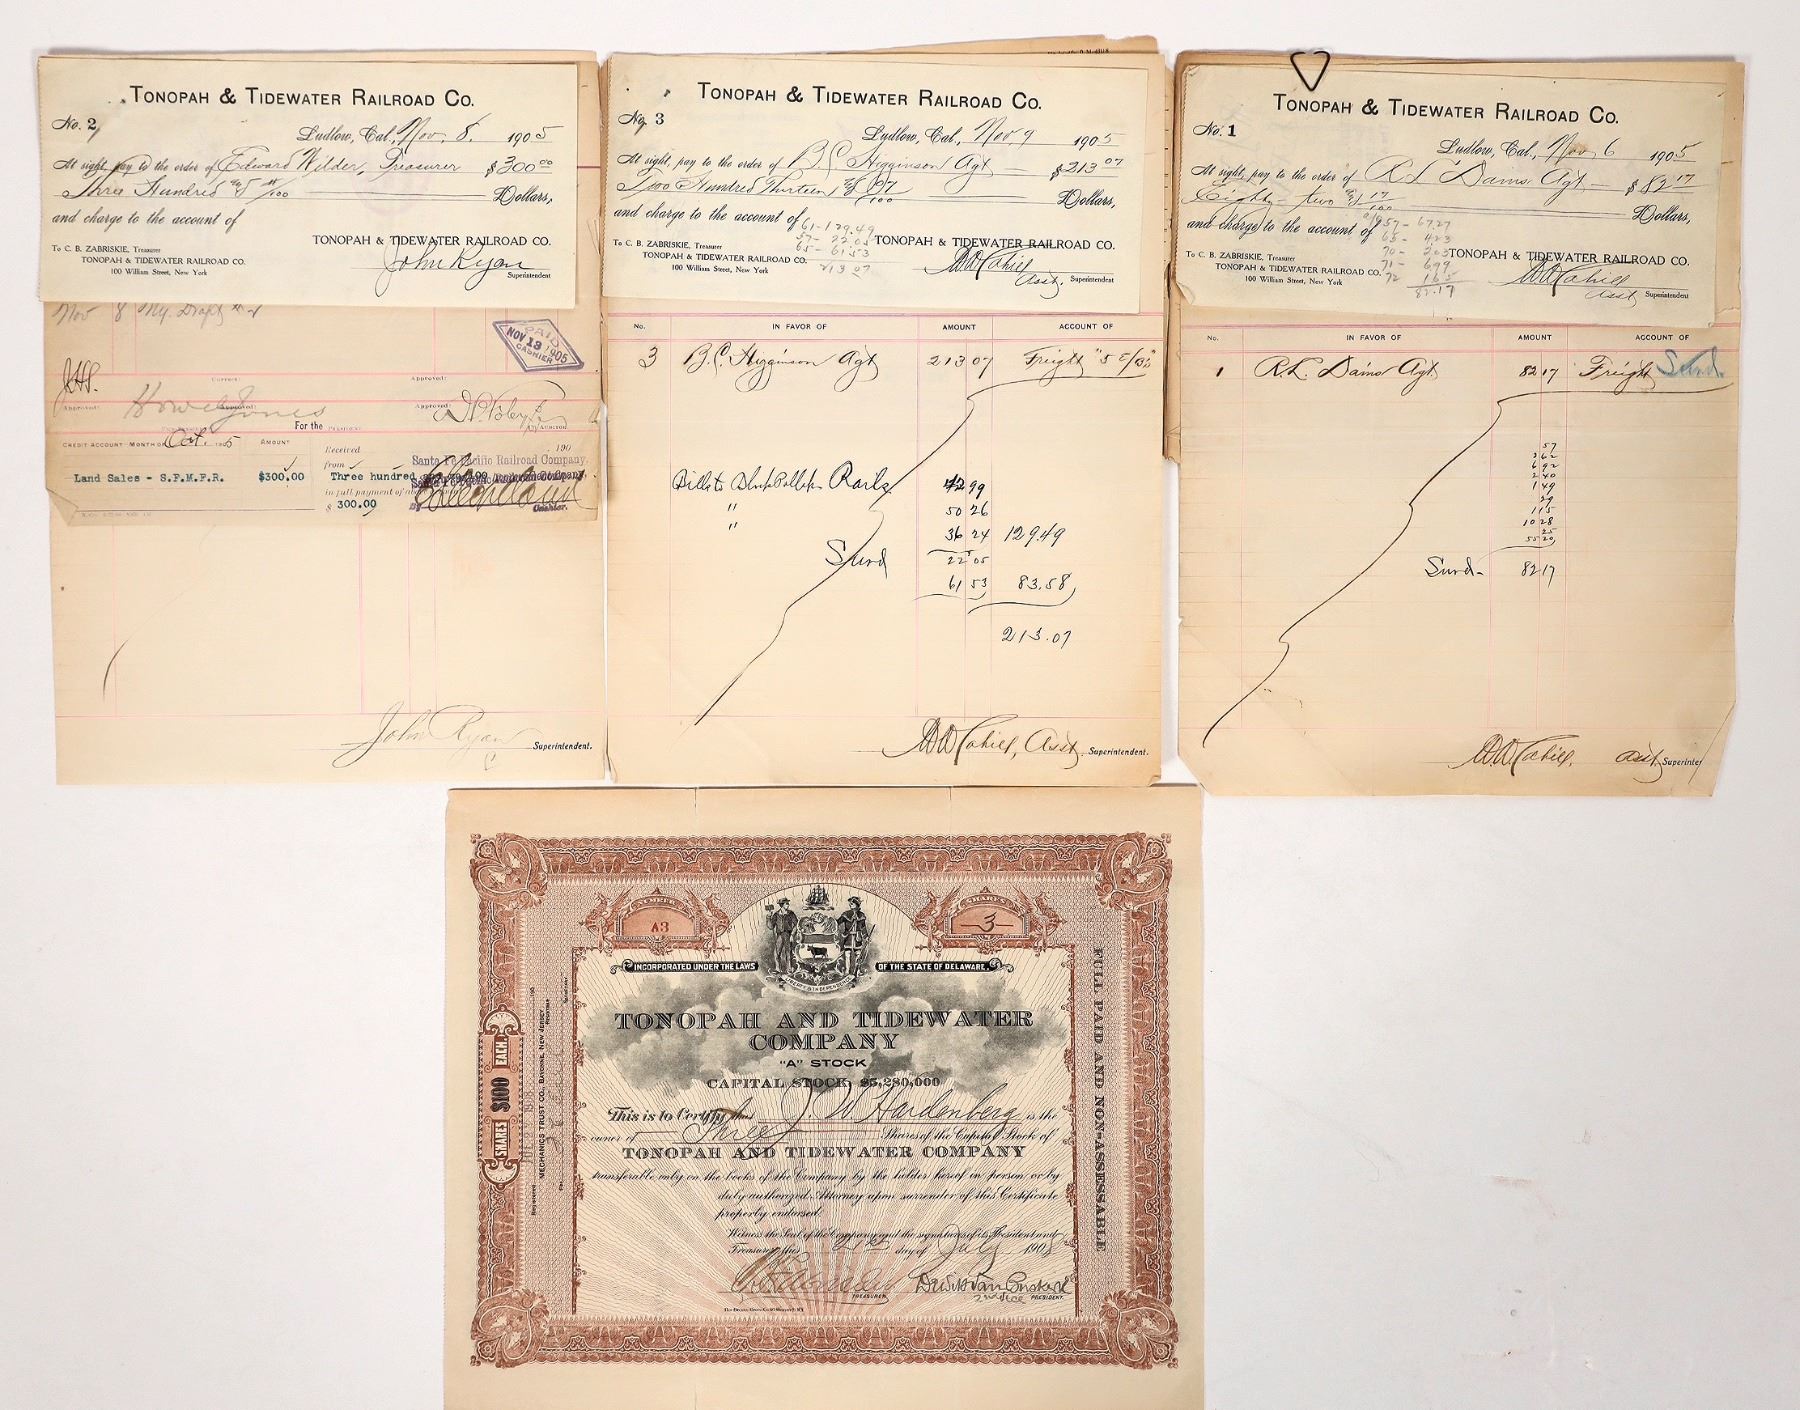 TONOPAH & TIDEWATER RAILROAD CO.
No. 2
Ludlow, Cal., Nov. 8. 1905
At sight, pay to the order of Edward Wilder, Treasurer $300 00
Three Hundred & 00/100 Dollars,
and charge to the account of
To C. B. ZABRISKIE, Treasurer
TONOPAH & TIDEWATER RAILROAD CO.
100 William Street, New York
TONOPAH & TIDEWATER RAILROAD CO.
John Ryan
Superintendent
Nov 8 My. Draft # 2
PAID
NOV 13 1905
CASHIER
Correct:
Approved:
Approved:
Approved:
For the PRESIDENT
AUDITOR
CREDIT ACCOUNT MONTH OF Oct. 1905
AMOUNT
Land Sales - S.F.M.P.R. $300.00
Received 190
from
Santa Fe Pacific Railroad Company
Three hundred
in full payment of
$ 300.00
By
Cashier.
John Ryan
Superintendent.
TONOPAH & TIDEWATER RAILROAD CO.
No. 3
Ludlow, Cal., Nov. 9 1905
At sight, pay to the order of B. C. Higginson Agt $213 07
Two Hundred Thirteen & 07/100 Dollars,
and charge to the account of
61-129.49
57- 22.05
65- 61.53
213 07
To C. B. ZABRISKIE, Treasurer
TONOPAH & TIDEWATER RAILROAD CO.
100 William Street, New York
TONOPAH & TIDEWATER RAILROAD CO.
W W Cahill
Asst. Superintendent
No. IN FAVOR OF AMOUNT ACCOUNT OF
3 B. C. Higginson Agt 213 07 Freight
Rails 42 99
" 50 26
" 36 24 129.49
Sund 22 05
61 53 83.58
213.07
W W Cahill, Asst. Superintendent.
TONOPAH & TIDEWATER RAILROAD CO.
No. 1
Ludlow, Cal., Nov 6 1905
At sight, pay to the order of Agt $ 82 17
Eighty-two & 17/100 Dollars,
and charge to the account of
57- 67.27
65- 4.23
70- 2.03
71- 6.99
72 1.65
82.17
To C. B. ZABRISKIE, Treasurer
TONOPAH & TIDEWATER RAILROAD CO.
100 William Street, New York
TONOPAH & TIDEWATER RAILROAD CO.
W W Cahill
Asst Superintendent
No. IN FAVOR OF AMOUNT ACCOUNT OF
1 Agt 82 17 Freight Sund.
57
3 62
6 92
2 40
1 49
29
1 15
10 28
25
55 20
Sund- 82 17
W. W. Cahill. Asst Superinte
NUMBER
A3
SHARES
3
INCORPORATED UNDER THE LAWS OF THE STATE OF DELAWARE
TONOPAH AND TIDEWATER
COMPANY
"A" STOCK
CAPITAL STOCK, $5,280,000
This is to Certify that J. W. Hardenberg is the
owner of Three Shares of the Capital Stock of
TONOPAH AND TIDEWATER COMPANY
transferable only on the books of the Company by the holder hereof in person or by
duly authorized Attorney upon surrender of this Certificate
properly endorsed.
Witness the Seal of the Company and the signatures of its President and
Treasurer this 21st day of July 1908
TREASURER
DeWitt Van Buskirk
2nd Vice PRESIDENT.
SHARES $100 EACH.
MECHANICS TRUST CO., BAYONNE, NEW JERSEY,
REGISTRAR
SECRETARY
FULL PAID AND NON-ASSESSABLE